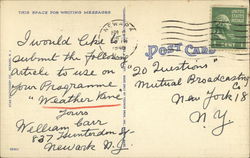 THIS SPACE FOR WRITING MESSAGES
NEWARK
POST CARD
I would like to
submit the following
article to use on
your Programme
"Weather Vane"
Yours
William Carr
837 Hunterdon St
Newark N.J.
"20 Questions"
Mutual Broadcasting
Co
New York 18
N.Y.